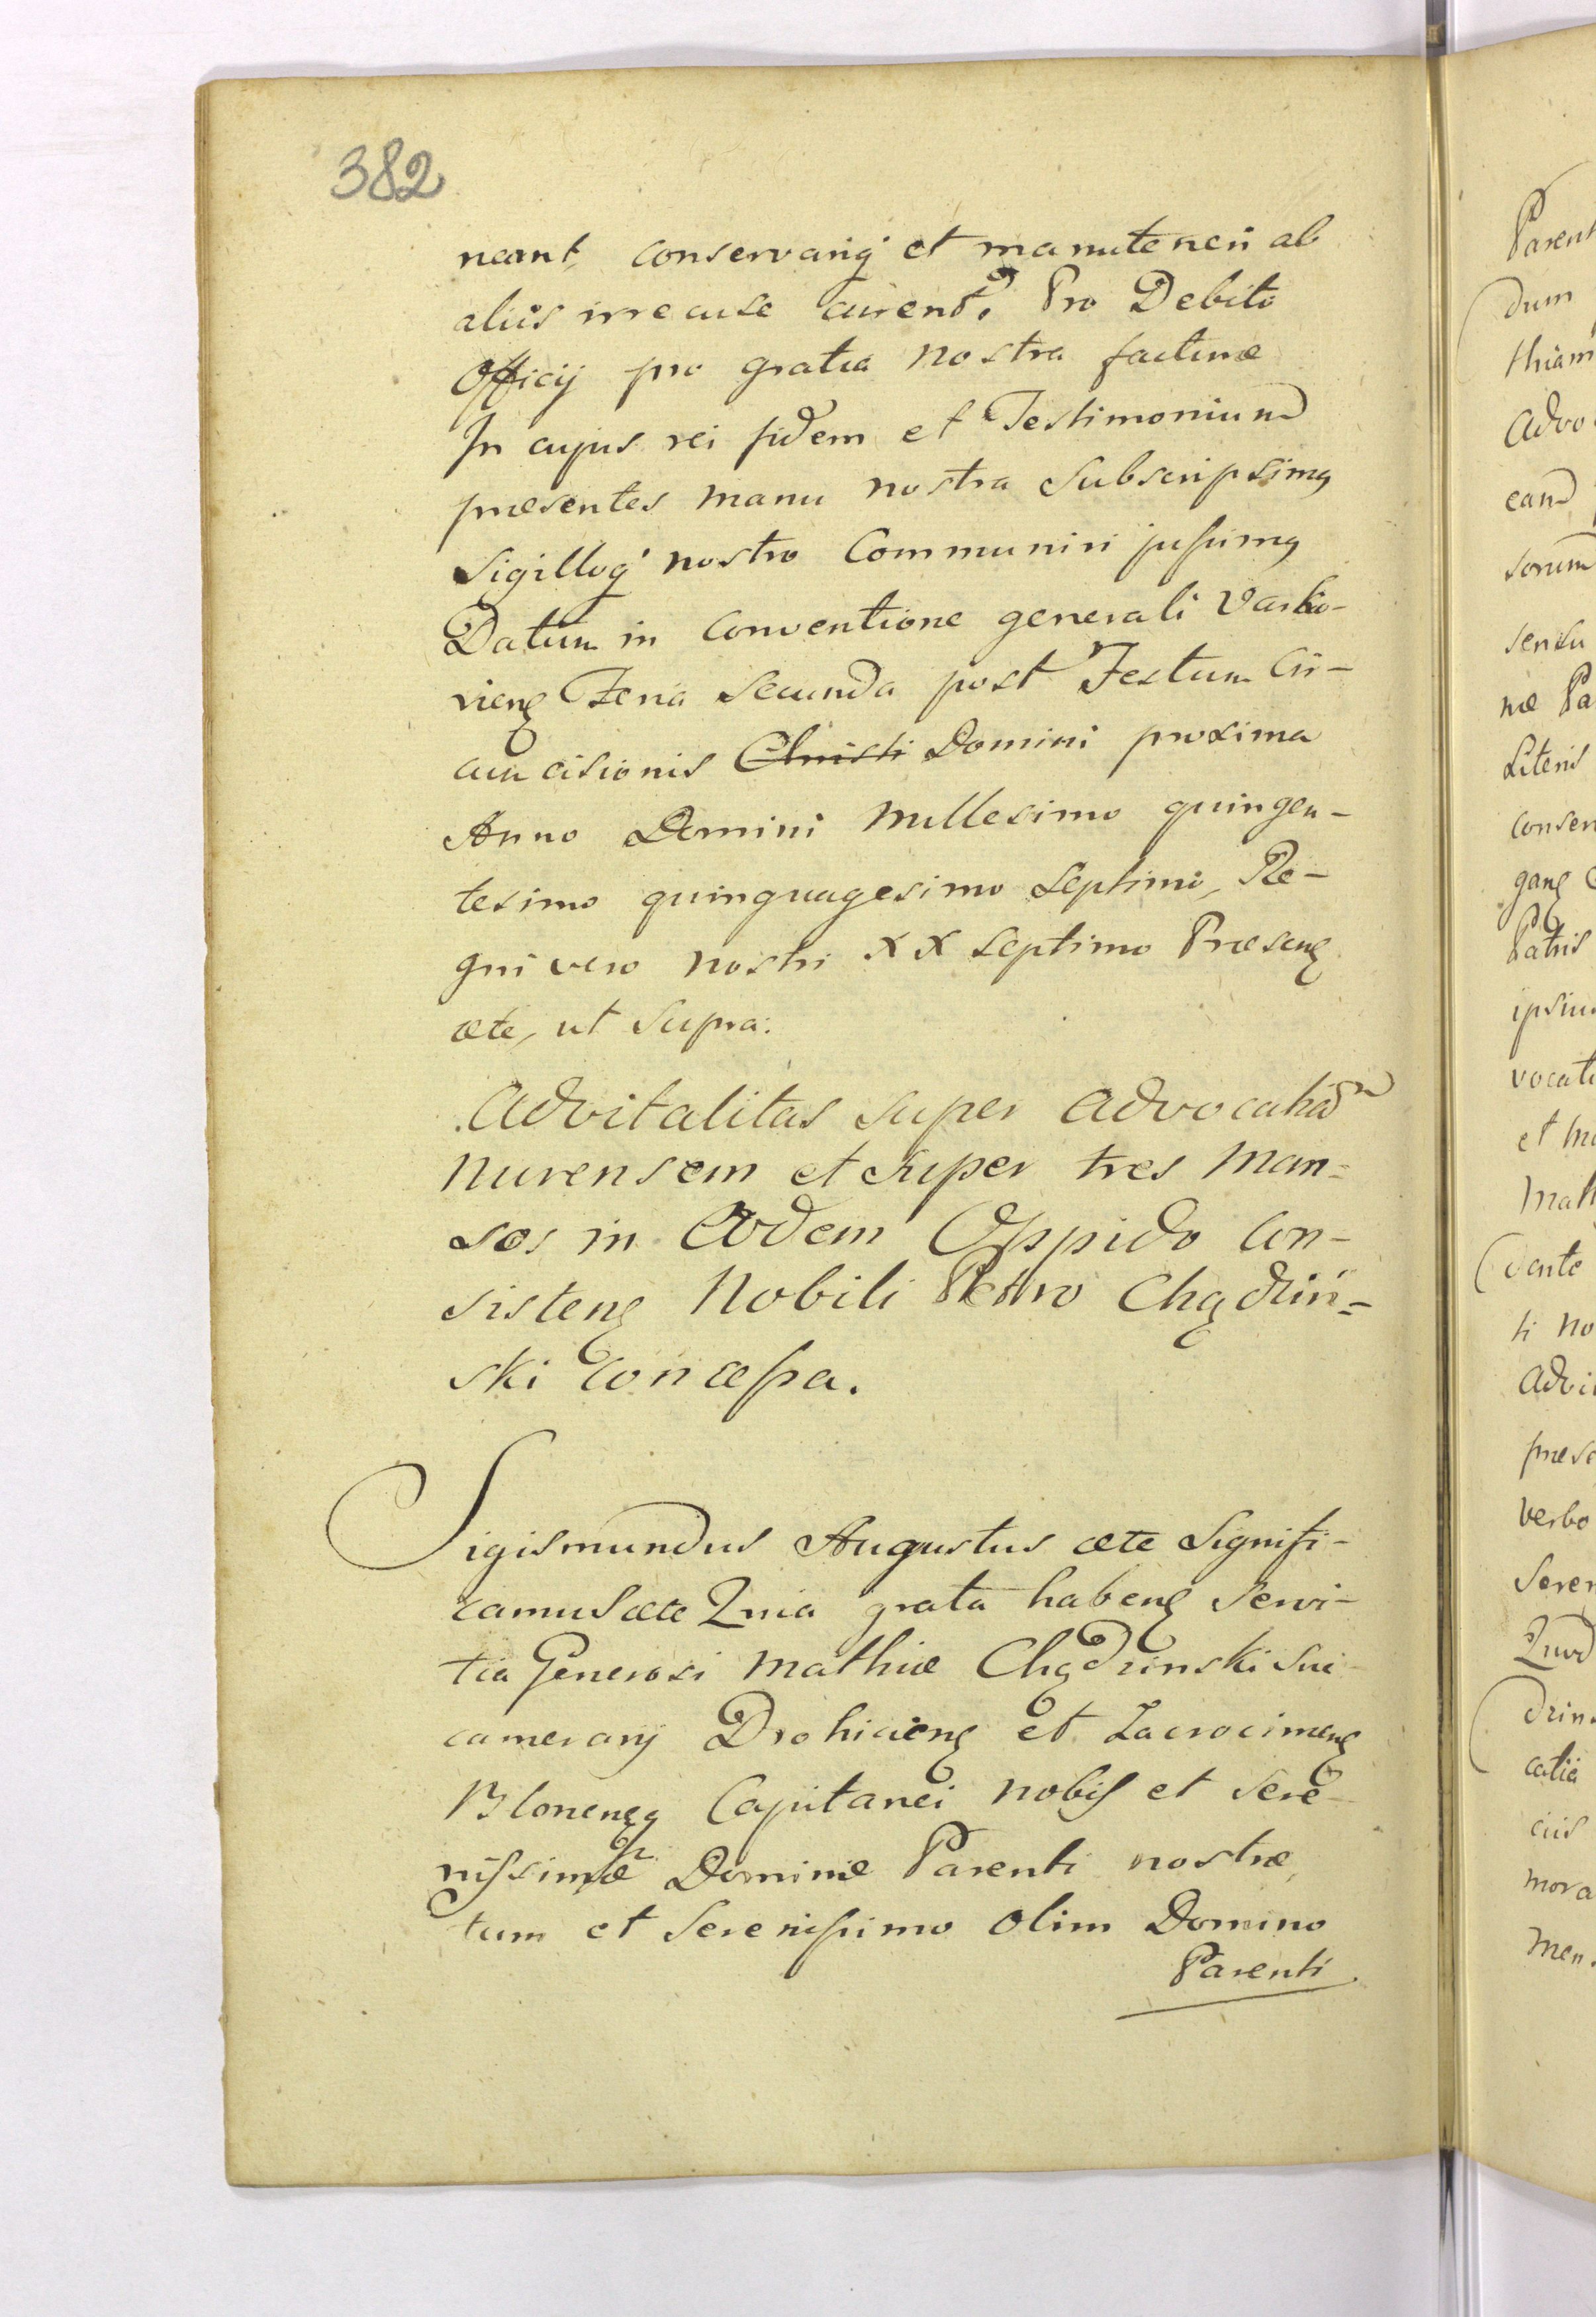 382
neant, conservariq' et manuteneri ab
aliis irrecuse curent. Pro Debito
Officij pro gratia nostra facturæ
In cujus rei fidem et Testimonium
præsentes manu nostra Subscripsimq
Sigilloq' nostro Communiri jussimq
Datum in Conventione generali Varso-
vienς Feria Secunda post Festum Cir-
cumcisionis Christi Domini proxima
Anno Domini Millesimo quingen-
tesimo quinquagesimo Septimo, Re-
gni vero nostri XX septimo Præsenς
ætc, ut Supra.
Advitalitas super Advocatiãm
Nurensem et super tres Man=
sos in Eodem Oppido Con-
sistenς Nobili Petro Chądziń=
ski Concessa.
Sigismundus Augustus ætc Signifi-
camus ætc Quia grata habenς Servi-
tia Generosi Mathiæ Chądzinski Suc
camerarij Drohicienς et Zacrocimenς
Blonenςq Capitanei nobis et Sere-
nissimæ Dominæ Parenti nostræ,
tum et Serenissimo olim Domino
Parenti
Parent
dum
thiam
Advo
eand
sorum
sensu
næ Pa
Literis
conser
ganς
Patris
ipsiu
vocati
et Ma
Math
cente
ti no
Advi
præse
verbo
Seren
Quod
dzin
catia
ciis
mora
Men